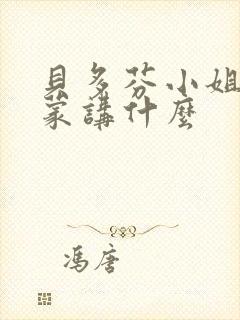 貝多芬小姐
蒙講什麼
馮唐